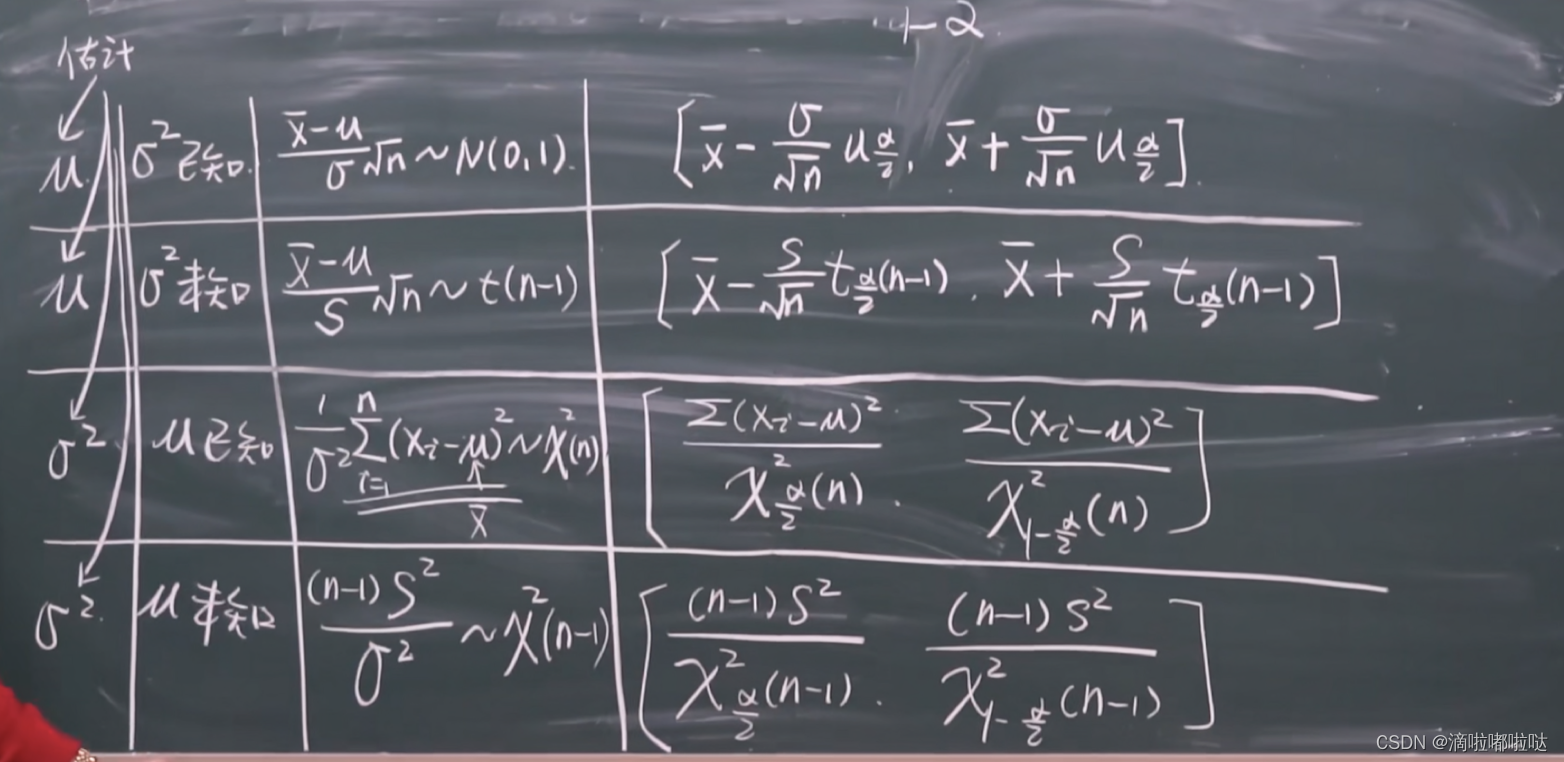 1-α
估计
μ σ²已知. (x̄-μ)/σ √n ~ N(0,1). [x̄ - σ/√n u_{α/2}, x̄ + σ/√n u_{α/2}].
μ σ²未知 (x̄-μ)/S √n ~ t(n-1) [x̄ - S/√n t_{α/2}(n-1), x̄ + S/√n t_{α/2}(n-1)]
σ² μ已知 1/σ² Σ_{i=1}^{n} (x_i-μ)² ~ χ²(n) [Σ(x_i-μ)²/χ²_{α/2}(n), Σ(x_i-μ)²/χ²_{1-α/2}(n)]
x̄
σ². μ未知 (n-1)S²/σ² ~ χ²(n-1) [(n-1)S²/χ²_{α/2}(n-1), (n-1)S²/χ²_{1-α/2}(n-1)]
CSDN @滴啦嘟啦哒